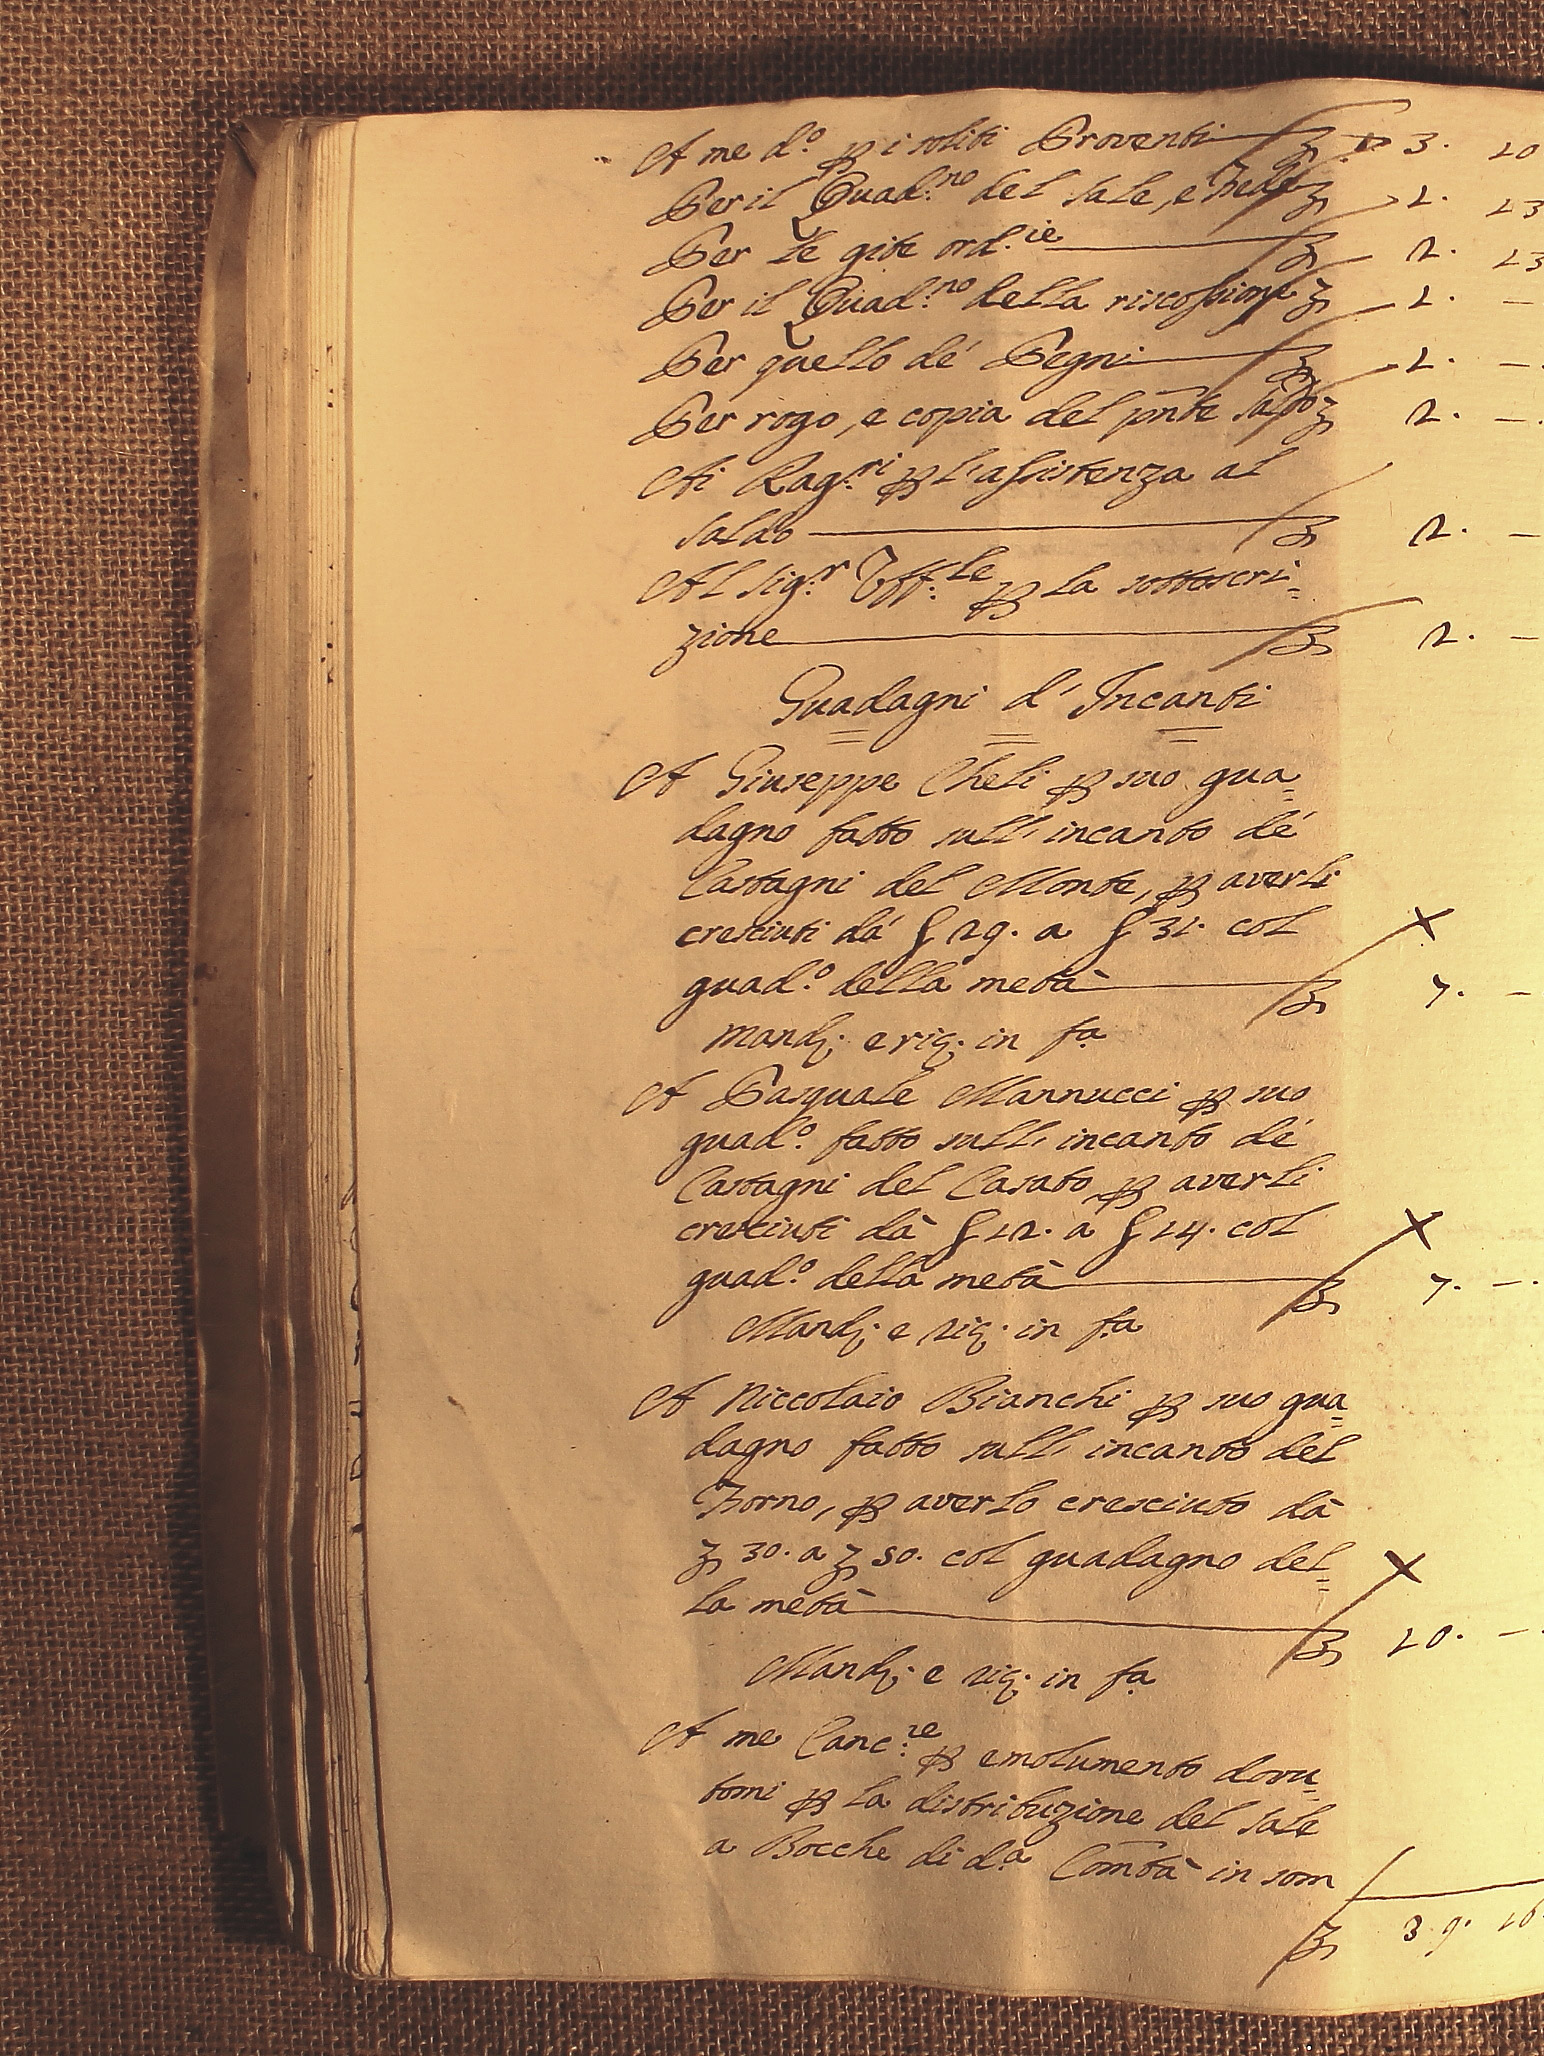 A me d.º p i soliti Proventi — £ 3. 10
Per il Quad.no del sale, e Fede £ 1. 13
Per le gite ord.ie — £ 2. 13
Per il Quad.no della riscossione £ 1. —
Per quello dé Pegni — £ 1. —
Per rogo, e copia del pnte saldo £ 2. —
Ai Rag.ri p l'assistenza al
saldo — £ 2. —
Al Sig.r Uff.le p la sottoscri=
zione — £ 2. —
Guadagni d' Incanti
A Giuseppe Cheli p suo gua=
dagno fatto sull' incanto dé
Castagni del Monte, p averli
cresciuti dà ∫ 29. a ∫ 31. col
guad.º della metà — £ 7. —
Mand. e ric. in f.a
A Pasquale Mannucci p suo
guad.º fatto sull' incanto dé
Castagni del Casato p averli
cresciuti dà ∫ 12. à ∫ 14. col
guad.º della metà — £ 7. —
Mand. e ric. in f.a
A Niccolaio Bianchi p suo gua=
dagno fatto sull' incanto del
Forno, p averlo cresciuto dà
£ 30. a £ 50. col guadagno del=
la metà — £ 10. —
Mand. e ric. in f.a
A me Canc.re p emolumento dovu=
tomi p la distribuzione del sale
a Bocche di d.a Comtà in som
£ 39. 16